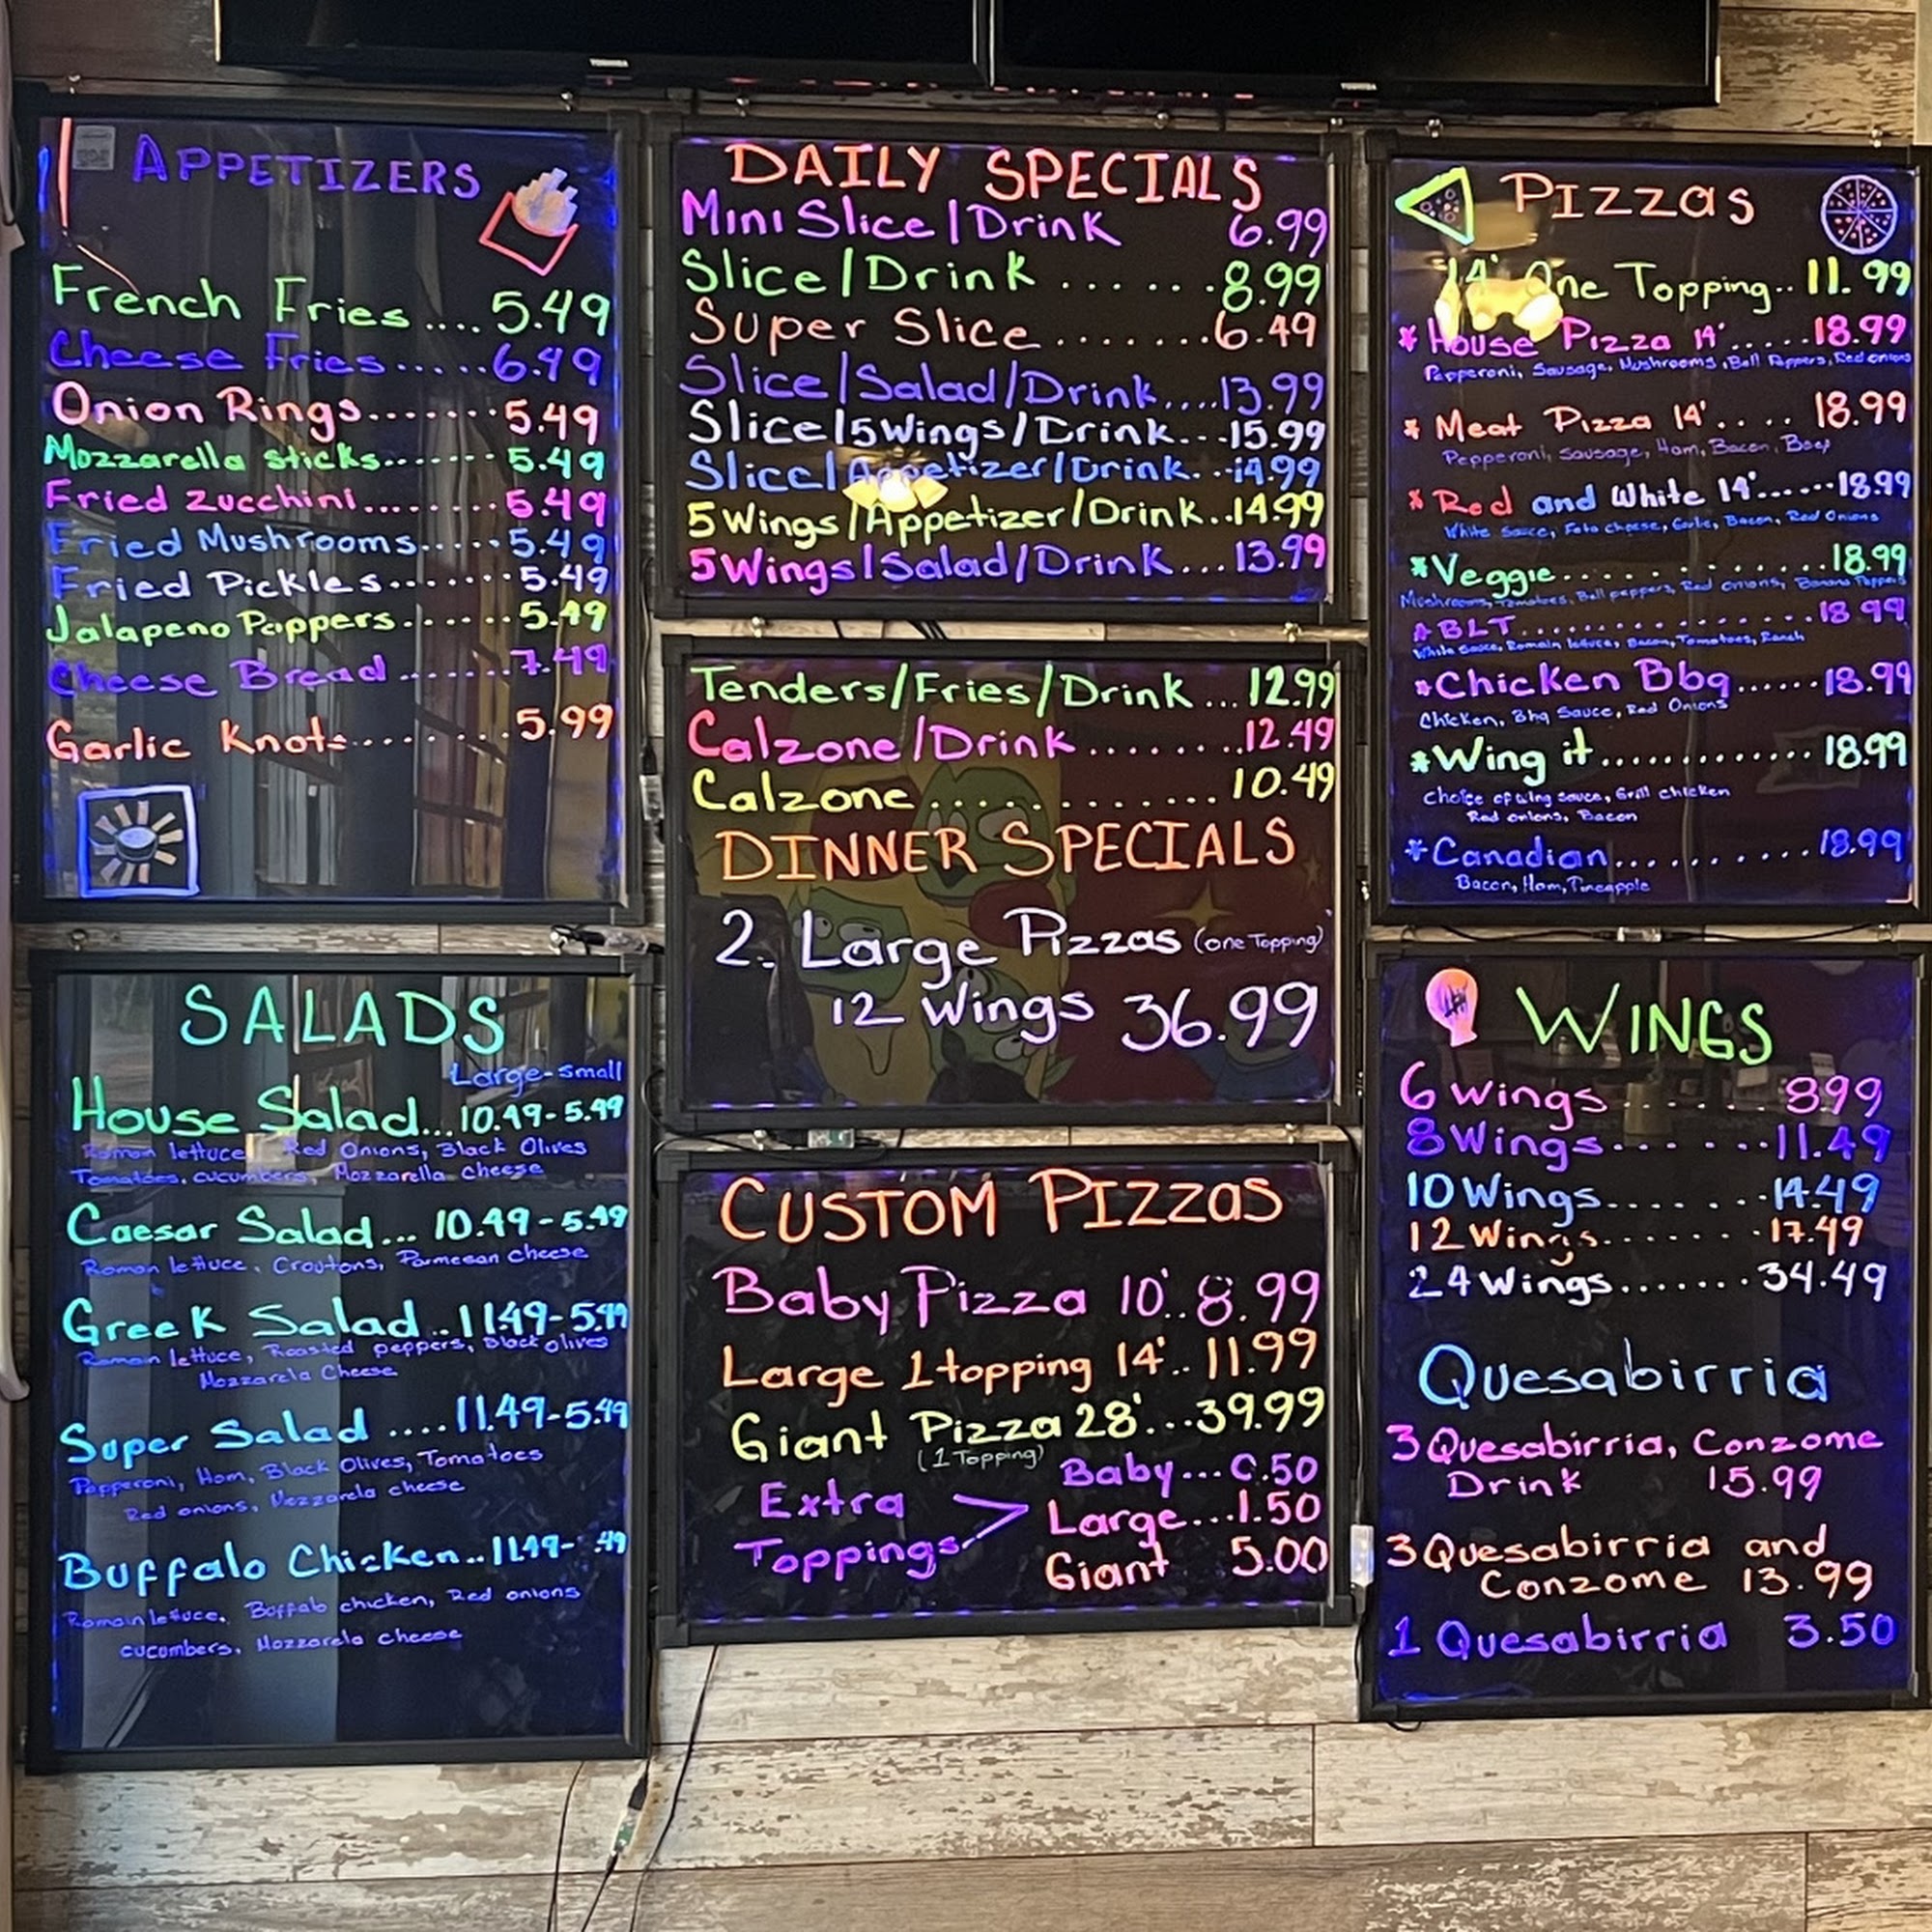 TOSHIBA
TOSHIBA
APPETIZERS
French Fries....5.49
Cheese Fries......6.49
Onion Rings.......5.49
Mozzarella sticks.......5.49
Fried zucchini........5.49
Fried Mushrooms.....5.49
Fried Pickles.......5.49
Jalapeno Poppers......5.49
Cheese Bread.......7.49
Garlic Knots........5.99
SALADS
Large-small
House Salad...10.49-5.49
Roman lettuce Red Onions, Black Olives
Tomatoes, cucumbers, Mozzarella cheese
Caesar Salad...10.49-5.49
Roman lettuce, Croutons, Parmesan cheese
Greek Salad..11.49-5.49
Roman lettuce, Roasted peppers, Black olives
Mozzarela Cheese
Super Salad ....11.49-5.49
Pepperoni, Ham, Black Olives, Tomatoes
Red onions, Mozzarela cheese
Buffalo Chicken..11.49- .49
Romain lettuce, Buffalo chicken, Red onions
cucumbers, Mozzarela cheese
DAILY SPECIALS
Mini Slice/Drink 6.99
Slice/Drink .......8.99
Super Slice........6.49
Slice/Salad/Drink....13.99
Slice/5Wings/Drink...15.99
Slice/Appetizer/Drink...14.99
5Wings/Appetizer/Drink..14.99
5Wings/Salad/Drink...13.99
Tenders/Fries/Drink ...12.99
Calzone/Drink.........12.49
Calzone............10.49
DINNER SPECIALS
2. Large Pizzas (one Topping)
12 Wings 36.99
CUSTOM PIZZAS
Baby Pizza 10'..8.99
Large 1topping 14'..11.99
Giant Pizza 28'...39.99
(1 Topping)
Baby...0.50
Extra
Large...1.50
Toppings
Giant 5.00
PIZZAS
14' One Topping..11.99
*House Pizza 14'.....18.99
Pepperoni, Sausage, Mushrooms, Bell Peppers, Red onions
*Meat Pizza 14'.....18.99
Pepperoni, Sausage, Ham, Bacon,
*Red and White 14'......18.99
White Sauce, Feta cheese, Garlic, Bacon, Red Onions
*Veggie............18.99
Mushrooms, Tomatoes, Bell peppers, Red onions, Banana Peppers
*BLT..............18.99
White Sauce, Romain lettuce, Bacon, Tomatoes, Ranch
*Chicken Bbq......18.99
Chicken, Bbq Sauce, Red Onions
*Wing it.............18.99
Choice of wing sauce, Grill chicken
Red onions, Bacon
*Canadian..........18.99
Bacon, Ham, Pineapple
WINGS
6 Wings.......899
8Wings.......11.49
10 Wings.......14.49
12 Wings........17.49
24 Wings.......34.49
Quesabirria
3 Quesabirria, Conzome
Drink 15.99
3 Quesabirria and
Conzome 13.99
1 Quesabirria 3.50